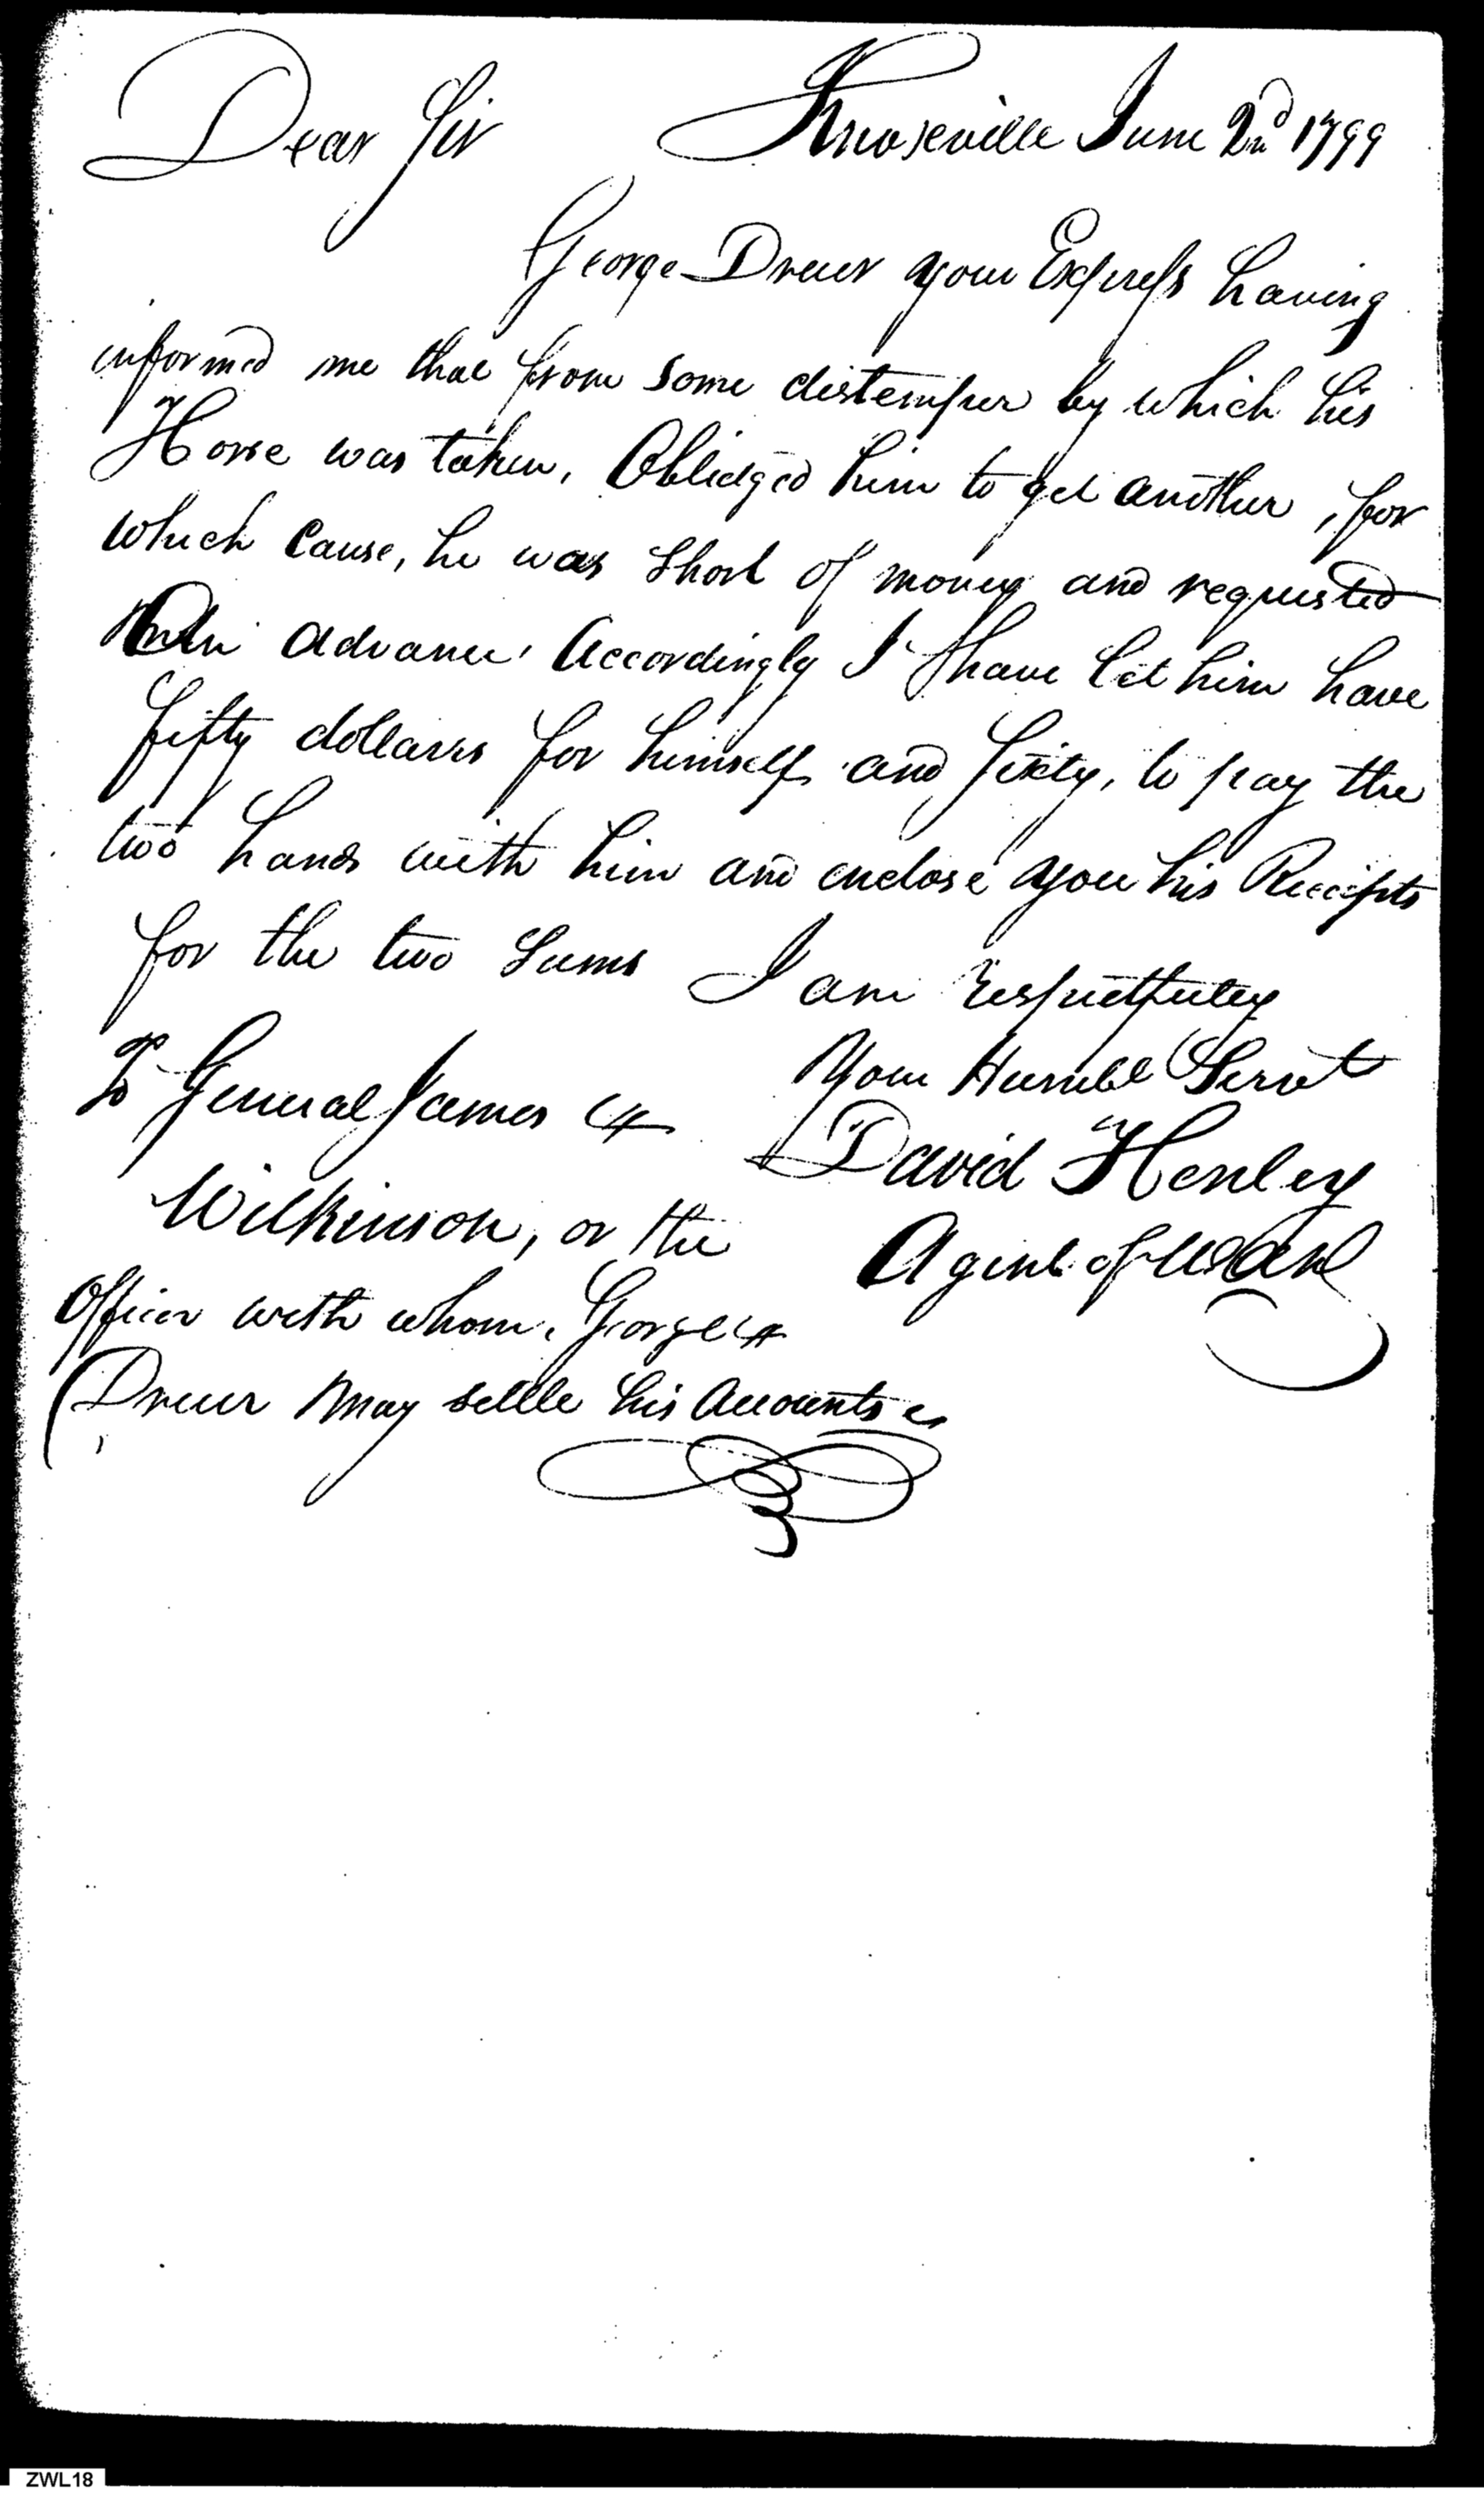 Dear Sir Knoxeville June 2nd 1799
George Drewr your Express having
informed me that from some distemper by which his
Horse was taken, Oblidged him to get another, for
which cause, he was short of money and requested
An advance, Accordingly I have let him have
fifty dollars for himself and sixty, to pay the
two hands with him and enclose you his Receipts
for the two Sums I am respectfuley
Your Humble Servt
David Henley
Agent of War
To General James
Wilkinson, or the
Officer with whom, George
Drewr may settle his Accounts
ZWL18